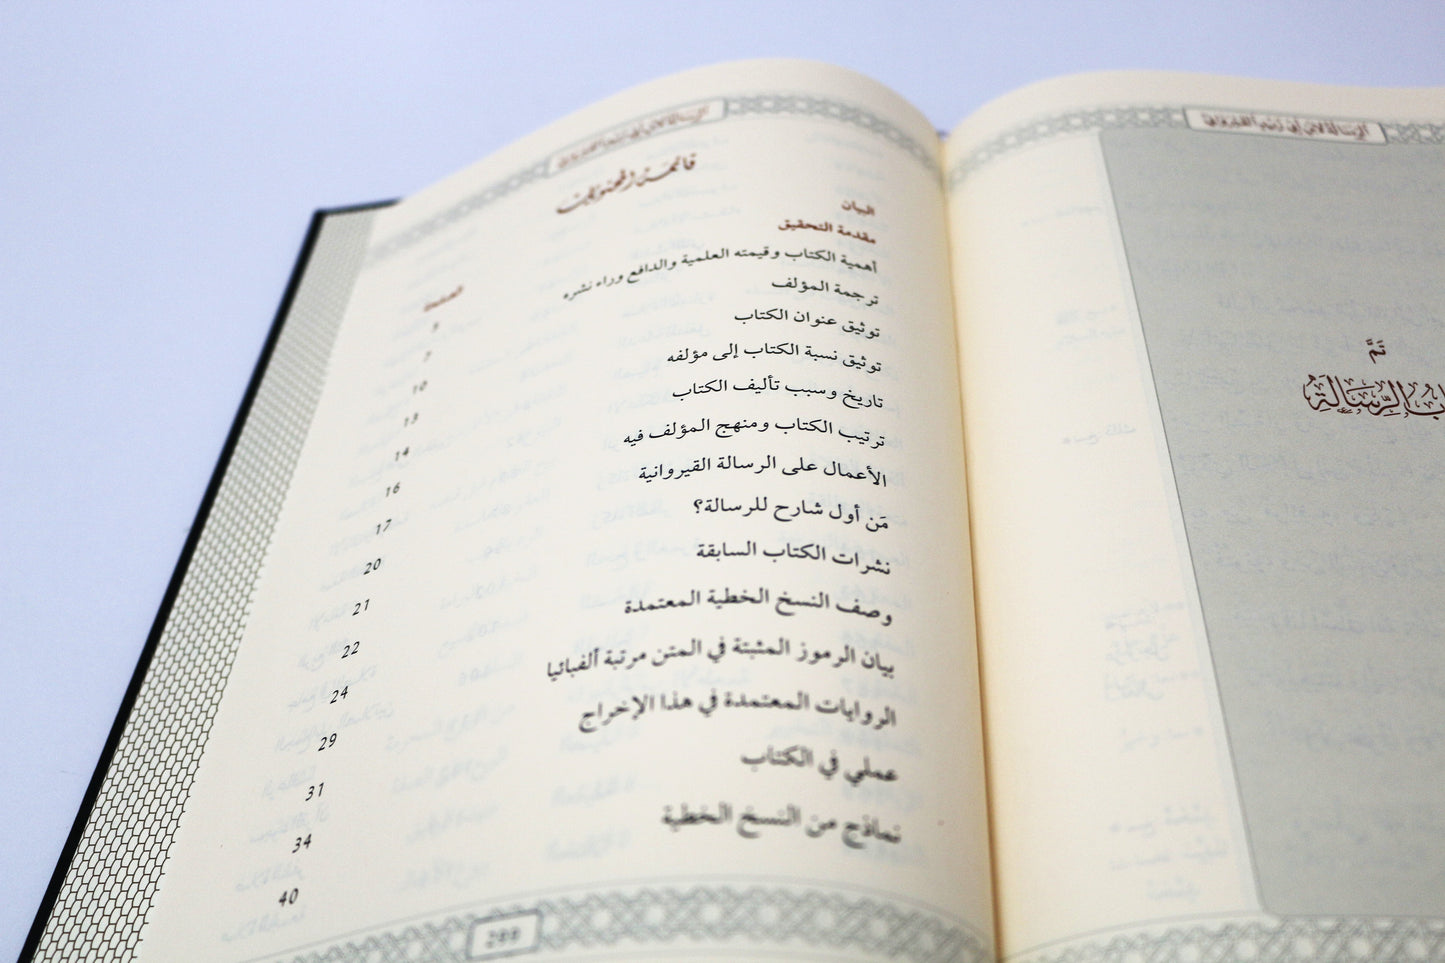 الرسالة لابن أبي زيد القيرواني
تَمَّ
ابُ الرِّسَالَةِ
الرسالة لابن أبي زيد القيرواني
قائمة المحتويات
البيان
الصفحة
مقدمة التحقيق
5
أهمية الكتاب وقيمته العلمية والدافع وراء نشره
7
ترجمة المؤلف
10
توثيق عنوان الكتاب
13
توثيق نسبة الكتاب إلى مؤلفه
14
تاريخ وسبب تأليف الكتاب
16
ترتيب الكتاب ومنهج المؤلف فيه
17
الأعمال على الرسالة القيروانية
20
مَن أول شارح للرسالة؟
21
نشرات الكتاب السابقة
22
وصف النسخ الخطية المعتمدة
24
بيان الرموز المثبتة في المتن مرتبة ألفبائيا
29
الروايات المعتمدة في هذا الإخراج
31
عملي في الكتاب
34
نماذج من النسخ الخطية
40